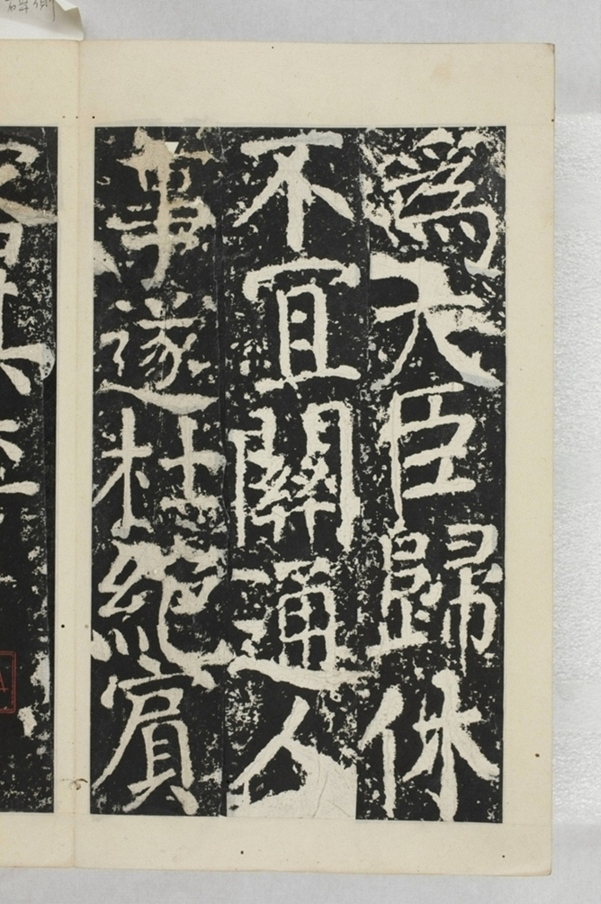 為大臣歸休
不宜關通人
事遂杜絕賓